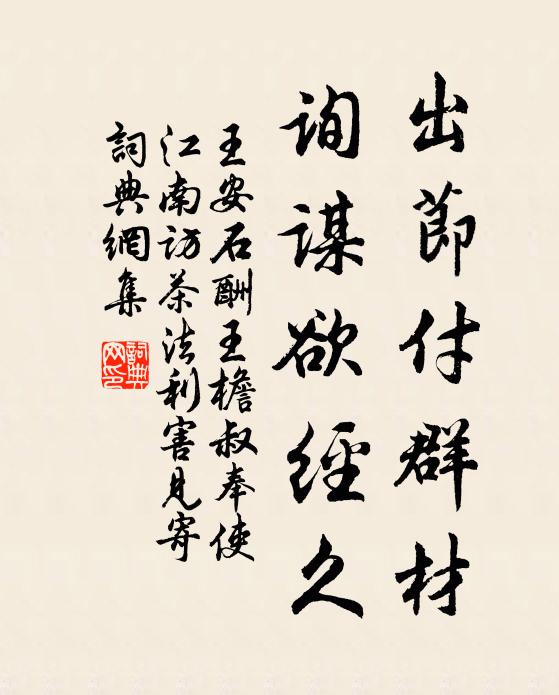 出莭付群材
询谋欲經久
王安石酬王檐叔奉使
江南访茶法利害見寄
詞典網集
詞典網印